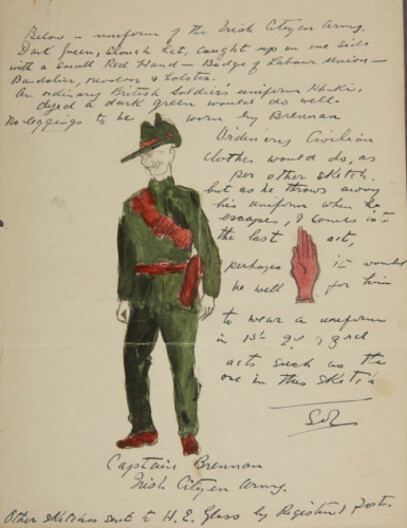 Below – uniform of the Irish Cityen Army.
Dark green, slouch hat, caught up on one side
with a small Red Hand – Badge of Labour Union –
Bandolier, revolver & holster.
An ordinary British Soldier's uniform Khaki,
dyed a dark green would do well.
No leggings to be worn by Brennan
Ordinary Civilian
clothes would do, as
per other sketch.
but as he throws away
his uniform when he
escapes, & comes into
the last act,
perhaps it would
be well for him
to wear a uniform
in 1st 2d & 3rd
acts such as the
one in this sketch
Captain Brennan
Irish Cityen Army.
Other sketches sent to H. E. Glass by Registered Post.